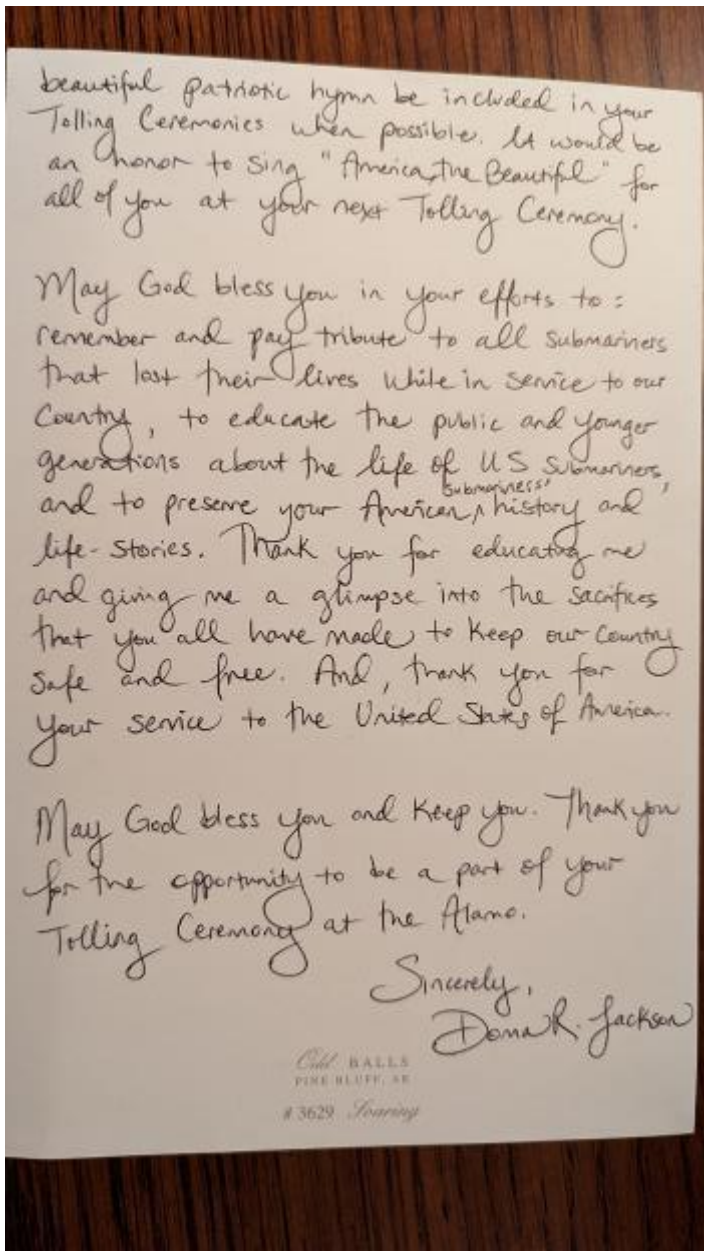 beautiful patriotic hymn be included in your
Tolling Ceremonies when possible. It would be
an honor to sing "America, the Beautiful" for
all of you at your next Tolling Ceremony.
May God bless you in your efforts to:
remember and pay tribute to all submariners
that lost their lives while in service to our
Country, to educate the public and younger
generations about the life of US submariners,
submariners'
and to preserve your American ^ history and
life-stories. Thank you for educating me
and giving me a glimpse into the sacrifices
that you all have made to keep our Country
safe and free. And, thank you for
your service to the United States of America.
May God bless you and keep you. Thank you
for the opportunity to be a part of your
Tolling Ceremony at the Alamo.
Sincerely,
Donna R. Jackson
Odd BALLS
PINE BLUFF, AR
# 3629 Soaring